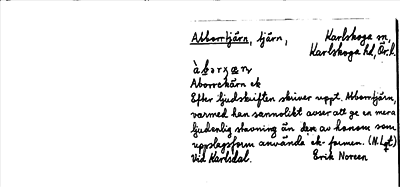 Abborrtjärn, tjärn, Karlskoga sn,
Karlskoga hd, Ör. l.
Aborrekärn ek
Efter ljudskriften skriver uppt. Abborrtjärn,
varmed han sannolikt avser att ge en mera
ljudenlig stavning än den av honom som
uppslagsform använda ek-formen. (N. Lgt)
Vid Karlsdal. Erik Noreen